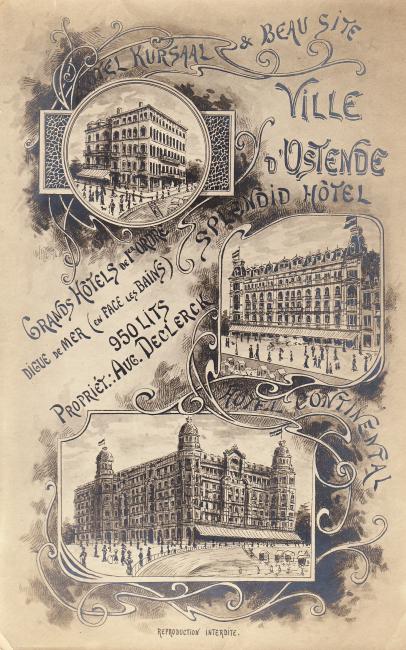 HÔTEL KURSAAL & BEAU SITE
VILLE
D'OSTENDE
SPLENDID HÔTEL
GRANDS HÔTELS DE 1er ORDRE
DIGUE DE MER (EN FACE LES BAINS)
950 LITS
PROPRIÉT.: AUG. DECLERCK
HÔTEL CONTINENTAL
REPRODUCTION INTERDITE.